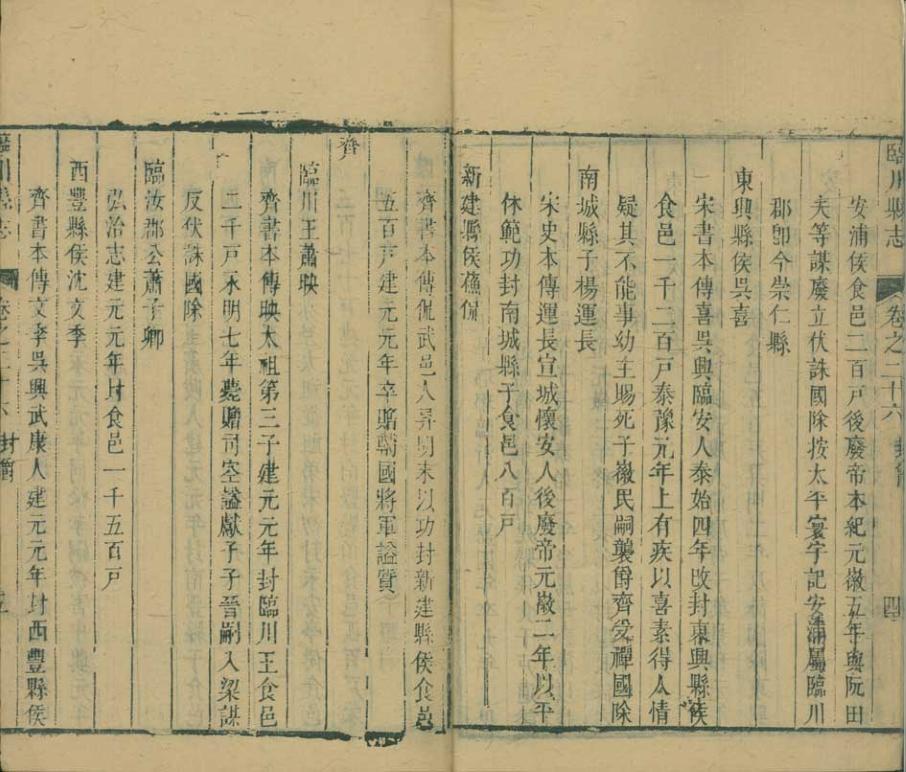 臨川縣志
卷之二十六
封爵
四
安浦侯食邑二百戸後廢帝本紀元徽五年與阮田
夫等謀廢立伏誅國除按太平寰宇記安浦屬臨川
郡卽今崇仁縣
東興縣侯吳喜
宋書本傳喜吳興臨安人泰始四年改封東興縣侯
食邑一千二百戸泰豫元年上有疾以喜素得人情
疑其不能事幼主賜死子徽民嗣襲爵齊受禪國除
南城縣子楊運長
宋史本傳運長宣城懷安人後廢帝元徽二年以平
休範功封南城縣子食邑八百戸
新建縣侯
齊書本傳侃武邑人昇明末以功封新建縣侯食邑
五百戸建元元年卒贈輔國將軍諡質
齊
臨川王蕭映
齊書本傳映太祖第三子建元元年封臨川王食邑
二千戸永明七年薨贈司空諡獻子子晉嗣入梁謀
反伏誅國除
臨汝郡公蕭子卿
弘治志建元元年封食邑一千五百戸
西豐縣侯沈文季
齊書本傳文季吳興武康人建元元年封西豐縣侯
臨川縣志
卷之二十六
封爵
五